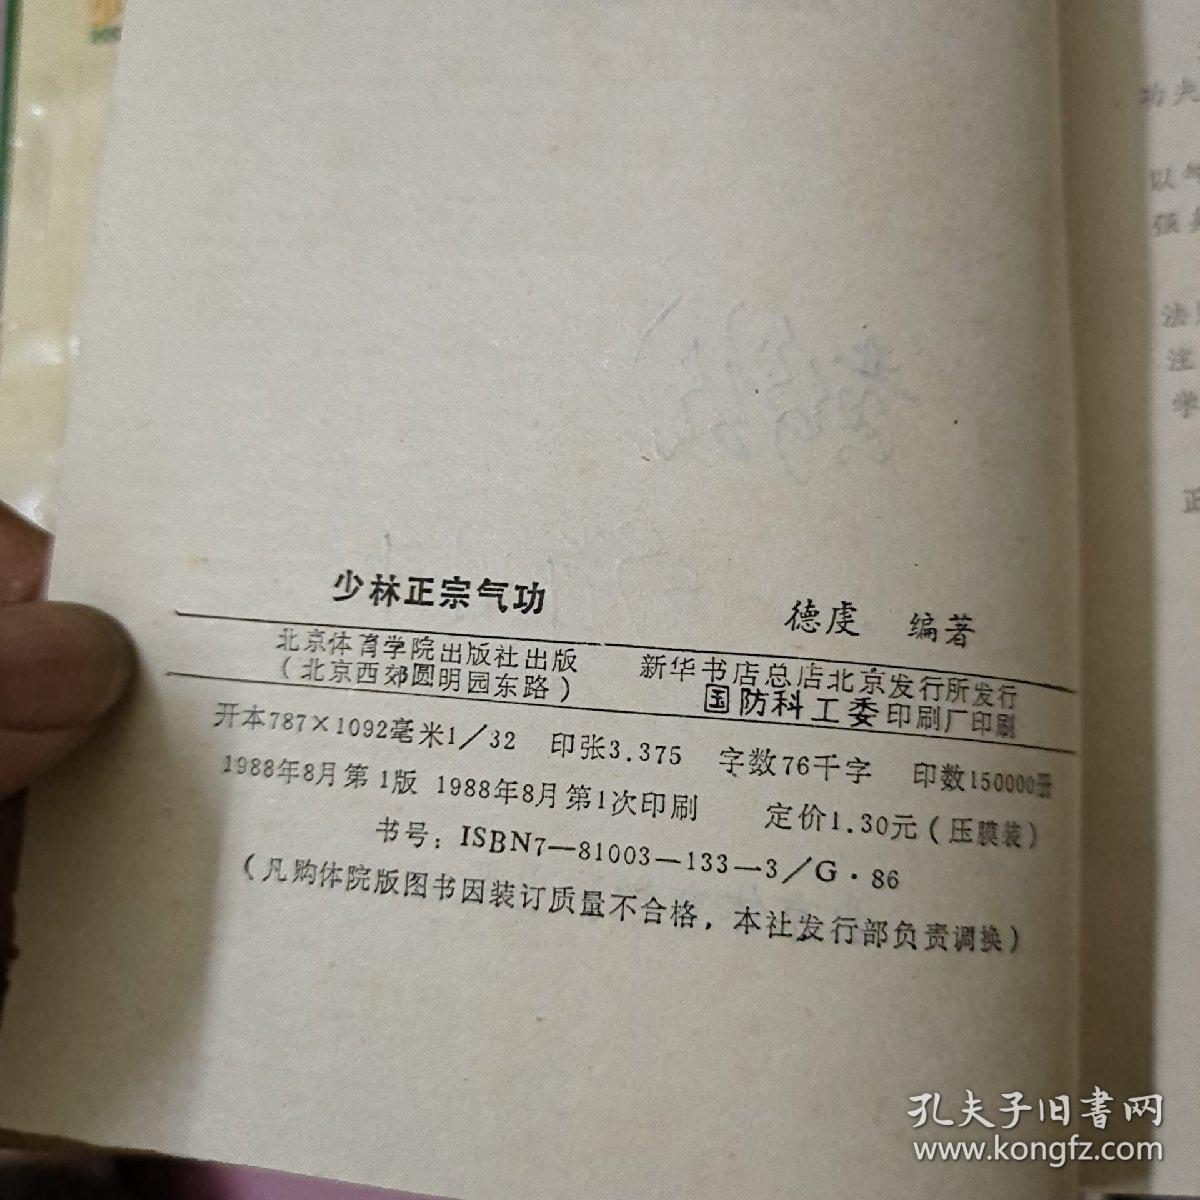 少林正宗气功
德虔 编著
北京体育学院出版社出版
(北京西郊圆明园东路)
新华书店总店北京发行所发行
国防科工委印刷厂印刷
开本787×1092毫米1/32 印张3.375 字数76千字 印数150000册
1988年8月第1版 1988年8月第1次印刷 定价1.30元(压膜装)
书号:ISBN7—81003—133—3/G·86
(凡购体院版图书因装订质量不合格,本社发行部负责调换)
功夫
以
强
法
注
学
正
孔夫子旧书网
www.kongfz.com